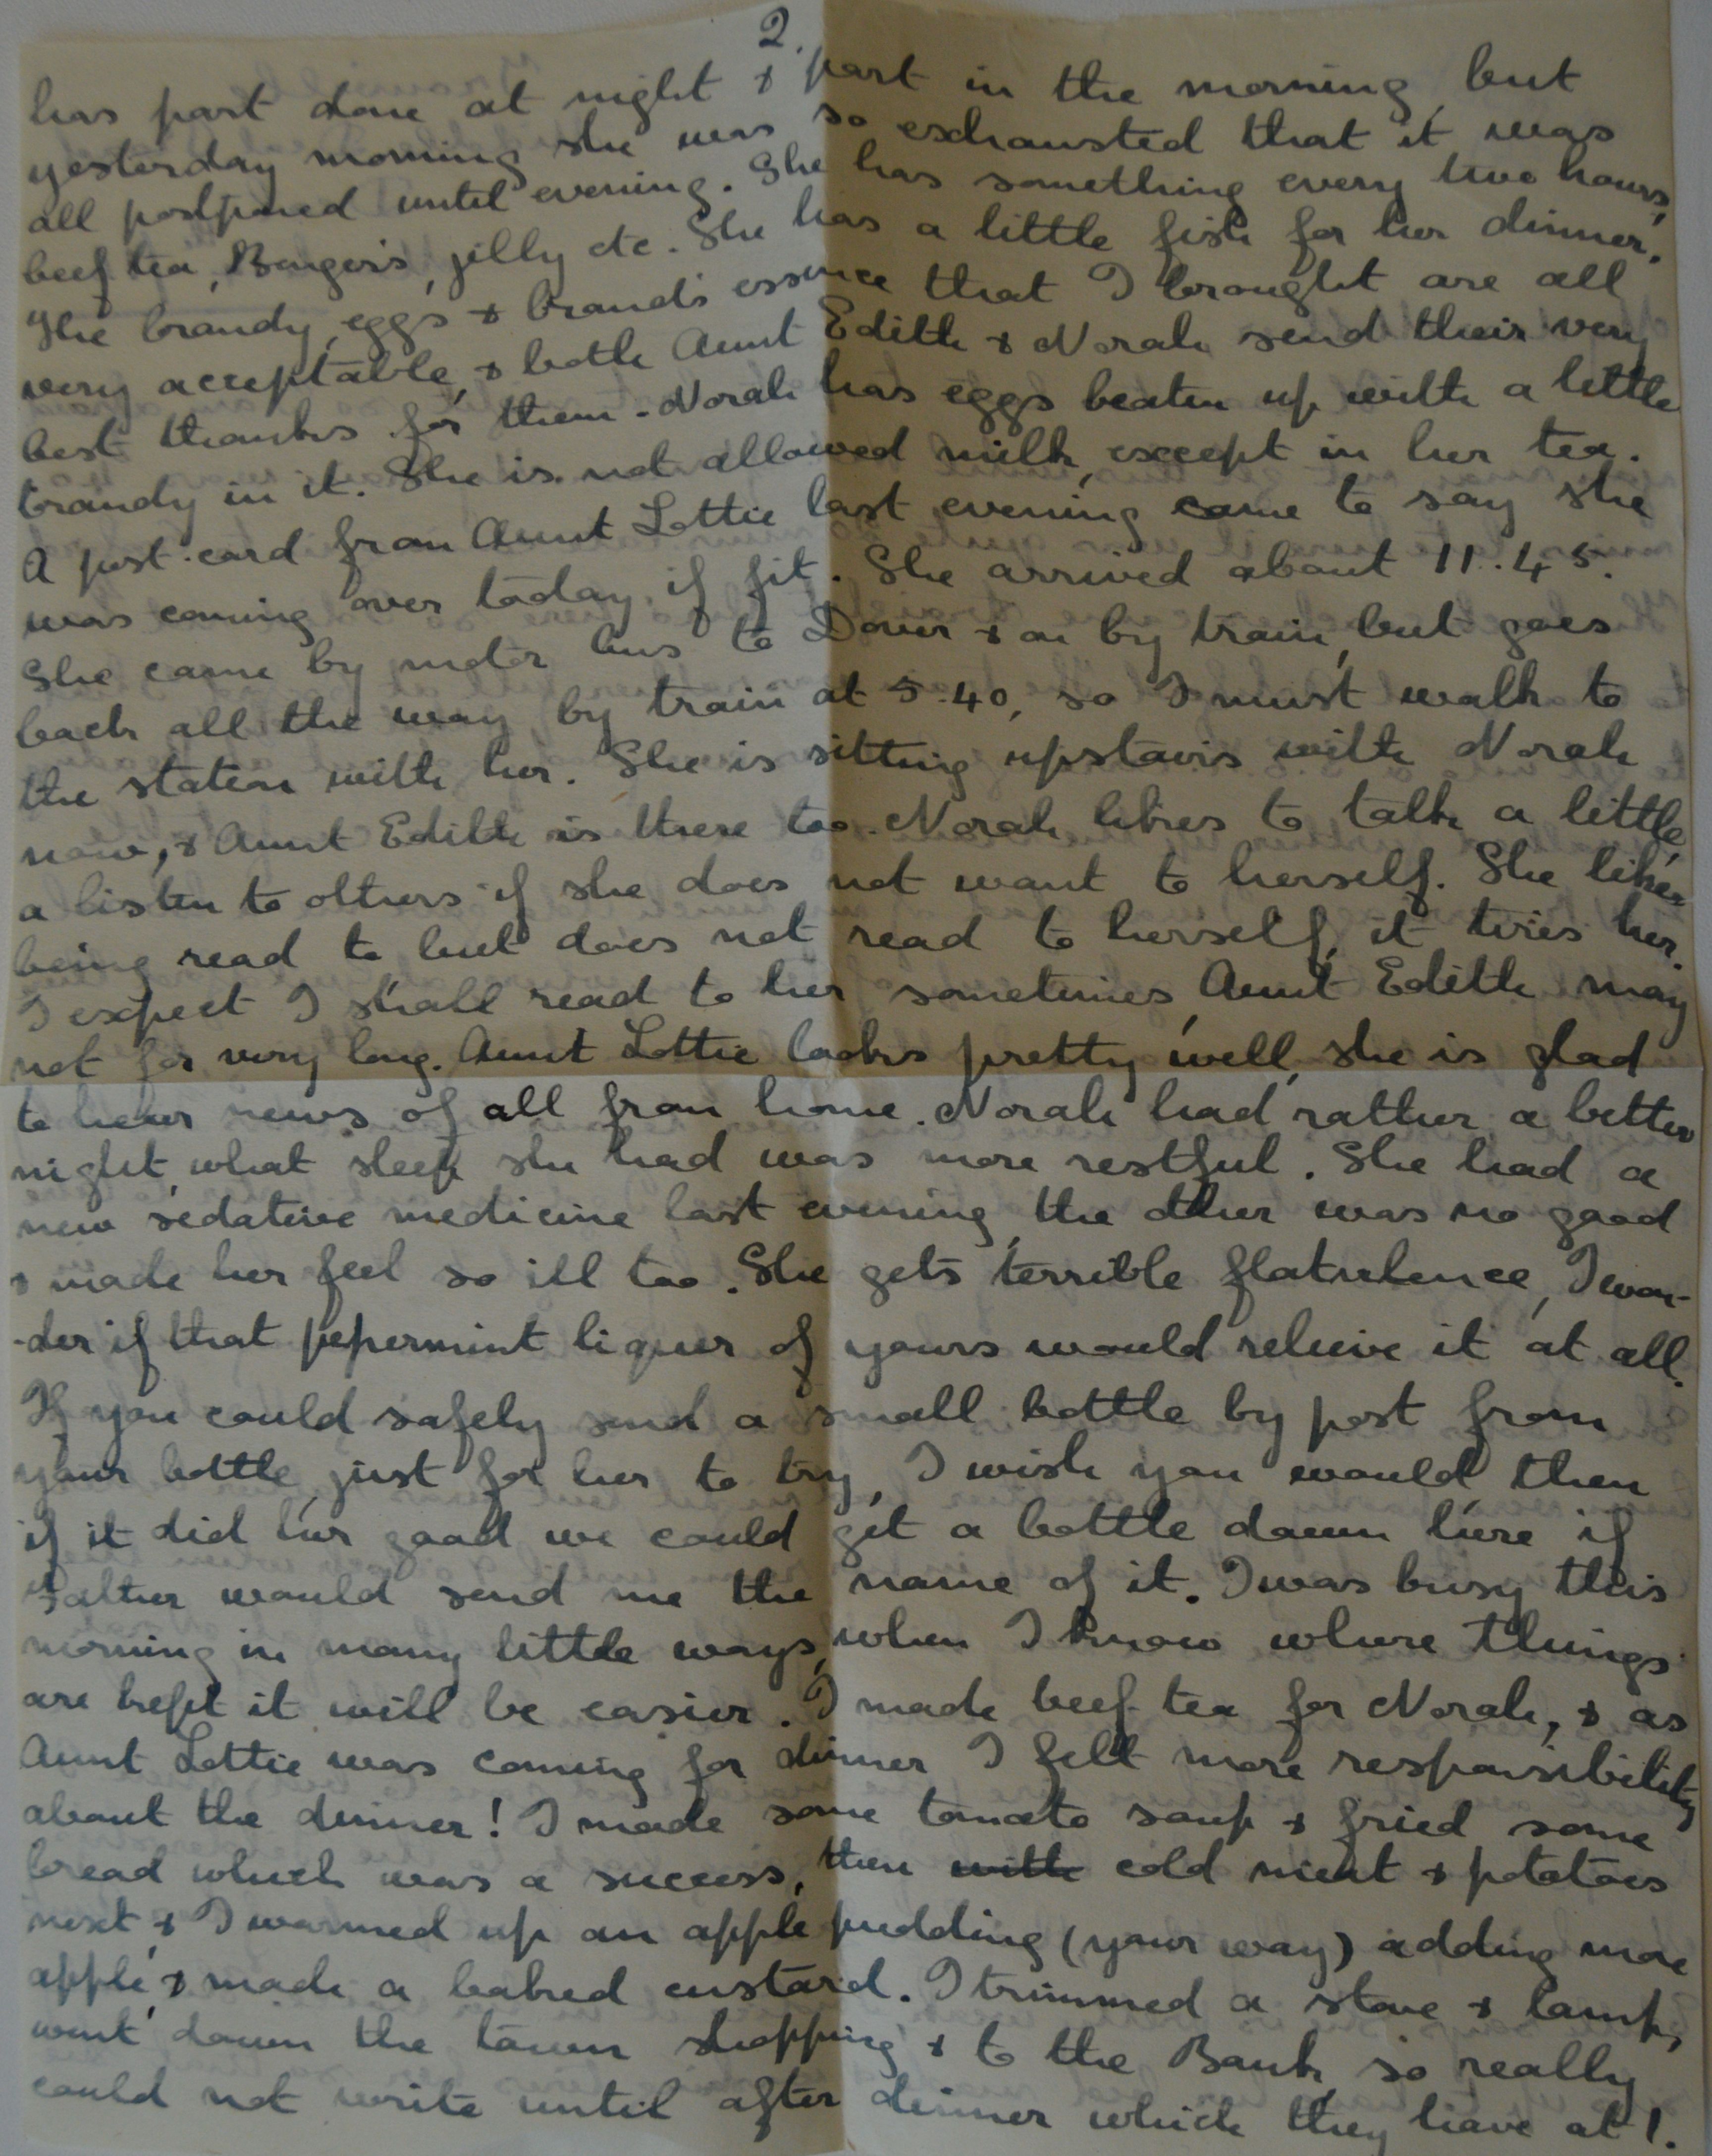 2.
has part done at night & part in the morning, but
yesterday morning she was so exhausted that it was
all postponed until evening. She has something every two hours,
beef tea, Benger's, jelly etc. She has a little fish for her dinner.
The brandy, eggs & brand's essence that I brought are all
very acceptable, & both Aunt Edith & Norah send their very
best thanks for them. Norah has eggs beaten up with a little
brandy in it. She is not allowed milk, except in her tea.
A post-card from Aunt Lottie last evening came to say she
was coming over today if fit. She arrived about 11.45.
She came by motor bus to Dover & on by train, but goes
back all the way by train at 5.40, so I must walk to
the station with her. She is sitting upstairs with Norah
now, & Aunt Edith is there too. Norah likes to talk a little,
a listen to others if she does not want to herself. She likes
being read to but does not read to herself, it tires her.
I expect I shall read to her sometimes, Aunt Edith may
not for very long. Aunt Lottie looks pretty well, she is glad
to hear news of all from home. Norah had rather a better
night, what sleep she had was more restful. She had a
new sedative medicine last evening, the other was no good
& made her feel so ill too. She gets terrible flatulence, I won-
-der if that pepermint liquer of yours would relieve it at all.
If you could safely send a small bottle by post from
your bottle, just for her to try, I wish you would then
if it did her good we could get a bottle down here if
Father would send me the name of it. I was busy this
morning in many little ways, when I know where things
are kept it will be easier. I made beef tea for Norah, & as
Aunt Lottie was coming for dinner I felt more responsibility
about the dinner! I made some tomato soup & fried some
bread which was a success, then with cold meat & potatoes
next, & I warmed up an apple pudding (your way) adding more
apple, & made a baked custard. I trimmed a stove & lamp,
went down the town shopping & to the Bank, so really
could not write until after dinner which they have at 1.